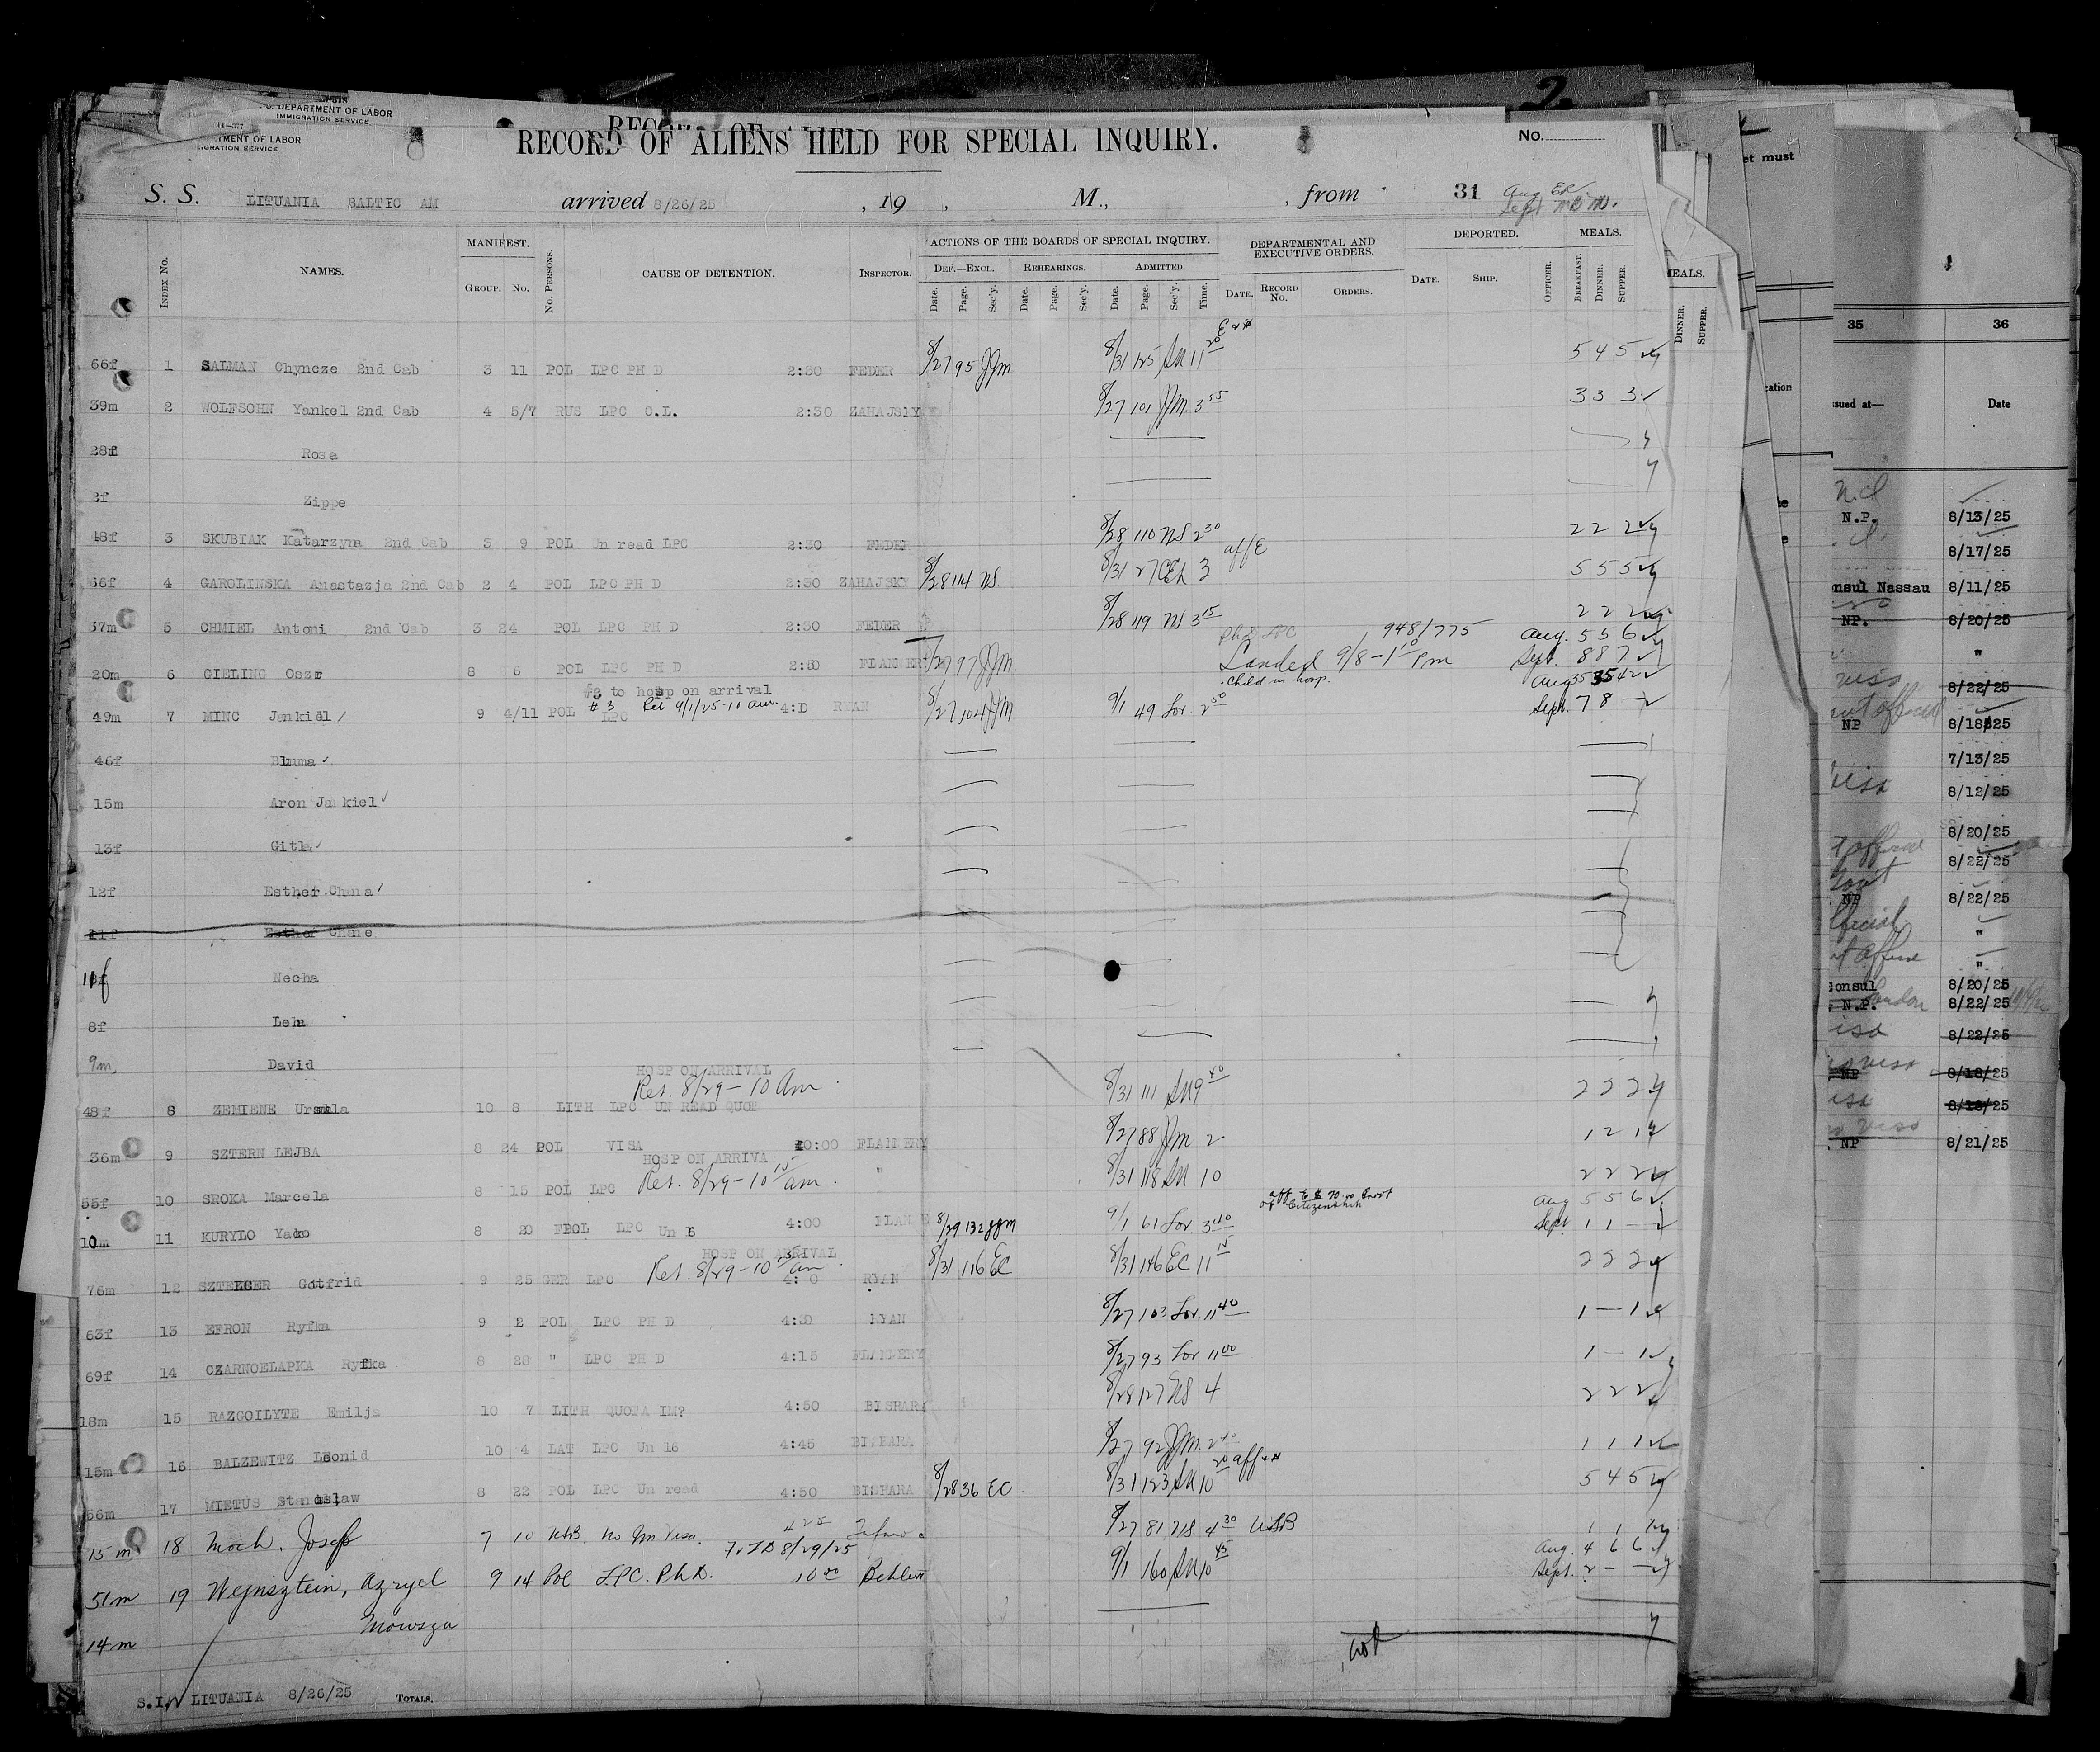 2
DEPARTMENT OF LABOR
IMMIGRATION SERVICE
14-377
TMENT OF LABOR
IGRATION SERVICE
RECORD OF ALIENS HELD FOR SPECIAL INQUIRY.
No.
S. S. LITUANIA BALTIC AM arrived 8/26/25, 19 , M., , from 31 Aug Sept
Index No. NAMES. MANIFEST. GROUP. No. No. PERSONS. CAUSE OF DETENTION. INSPECTOR.
ACTIONS OF THE BOARDS OF SPECIAL INQUIRY. DEF.—EXCL. REHEARINGS. ADMITTED.
Date. Page. Sec'y. Date. Page. Sec'y. Date. Page. Sec'y. Time.
DEPARTMENTAL AND EXECUTIVE ORDERS. DATE. RECORD NO. ORDERS.
DEPORTED. DATE. SHIP. OFFICER.
MEALS. BREAKFAST. DINNER. SUPPER.
66f 1 SALMAN Chyncze 2nd Cab 3 11 POL LPC PH D 2:30 FEDER 8/27 95 JJM 8/31 125 11 20 5 4 5
39m 2 WOLFSOHN Yankel 2nd Cab 4 5/7 RUS LPC C.L. 2:30 ZAHAJSKY 8/27 101 JJM 3 55 3 3 3
28f Rosa
2f Zippe
48f 3 SKUBIAK Katarzyna 2nd Cab 3 9 POL Un read LPC 2:30 FEDER 8/28 110 NS 2 30 2 2 2
66f 4 GAROLINSKA Anastazja 2nd Cab 2 4 POL LPC PH D 2:30 ZAHAJSKY 8/28 114 NS 8/31 27 3 5 5 5
37m 5 CHMIEL Antoni 2nd Cab 3 24 POL LPC PH D 2:30 FEDER 8/28 119 NS 3 15 2 2 2
948/775 Aug. 5 5 6
20m 6 GIELING Oszr 8 6 POL LPC PH D 2:30 FLANNERY 8/27 97 JJM Landed 9/8-1 10 Pm Sept. 8 8 7
to hosp on arrival
# 3 Ret 9/1/25-11 am. child in hosp. Aug
49m 7 MINC Jankiel 9 4/11 POL LPC 4:D RYAN 8/27 104 JJM 9/1 49 Lov. 2 50 Sept. 7 8 —
46f Bluma
15m Aron Jankiel
13f Gitla
12f Esther Chana
11f Esther Chane
11f Necha
8f Leha
9m David
HOSP ON ARRIVAL
Ret. 8/29-10 am
48f 8 ZEMIENE Ursula 10 8 LITH LPC UN READ QUOT 8/31 111 9 40 2 2 2
36m 9 SZTERN LEJBA 8 24 POL VISA 10:00 FLANNERY 8/27 88 JJM 2 1 2 1
HOSP ON ARRIVA
Ret. 8/29-10 15 am.
55f 10 SROKA Marcela 8 15 POL LPC " 8/31 118 10 2 2 2
Aug 5 5 6
10m 11 KURYLO Yako 8 20 POL LPC Un 16 4:00 FLANE 8/29 132 JJM 9/1 61 Lov. 3 40 of Citizenship Sept 1 1 —
HOSP ON ARRIVAL
Ret. 8/29-10 15 am
76m 12 Gotfrid 9 25 GER LPC 4: 0 RYAN 8/31 116 EC 8/31 146 EC 11 15 2 2 2
63f 13 EFRON Ryfka 9 2 POL LPC PH D 4:30 RYAN 8/27 103 Lov. 11 40 1 — 1
69f 14 CZARNOELAPKA Ryfka 8 28 " LPC PH D 4:15 FLANNERY 8/27 93 Lov 11 00 1 — 1
18m 15 RAZGOILYTE Emilja 10 7 LITH QUOTA IM? 4:50 BISHARA 8/28 127 NS 4 2 2 2
15m 16 BALZEWITZ Leonid 10 4 LAT LPC Un 16 4:45 BISHARA 8/27 92 JJM. 2 40 1 1 1
56m 17 MIETUS Stanislaw 8 22 POL LPC Un read 4:50 BISHARA 8/28 36 EC 8/31 123 10 20 aff 5 4 5
15m 18 Moch, Josef 7 10 USB No Im Visa. 8/27 81 NS 4 30 USB 1 1 1
8/29/25 Aug. 4 6 6
51m 19 Wejnsztein, Azryel 9 14 Pol LPC. Ph.D. 10 00 9/1 160 10 45 Sept. 2 — —
14m Mowsza
S.I. LITUANIA 8/26/25 TOTALS.
MEALS.
DINNER.
SUPPER.
et must
35 36
ication
ssued at— Date
N.P. 8/13/25
8/17/25
onsul Nassau 8/11/25
NP. 8/20/25
"
8/22/25
NP 8/18/25
7/13/25
visa 8/12/25
8/20/25
8/22/25
NP 8/22/25
"
"
Consul 8/20/25
N.P. London 8/22/25
8/22/25
NP 8/18/25
8/18/25
NP 8/21/25